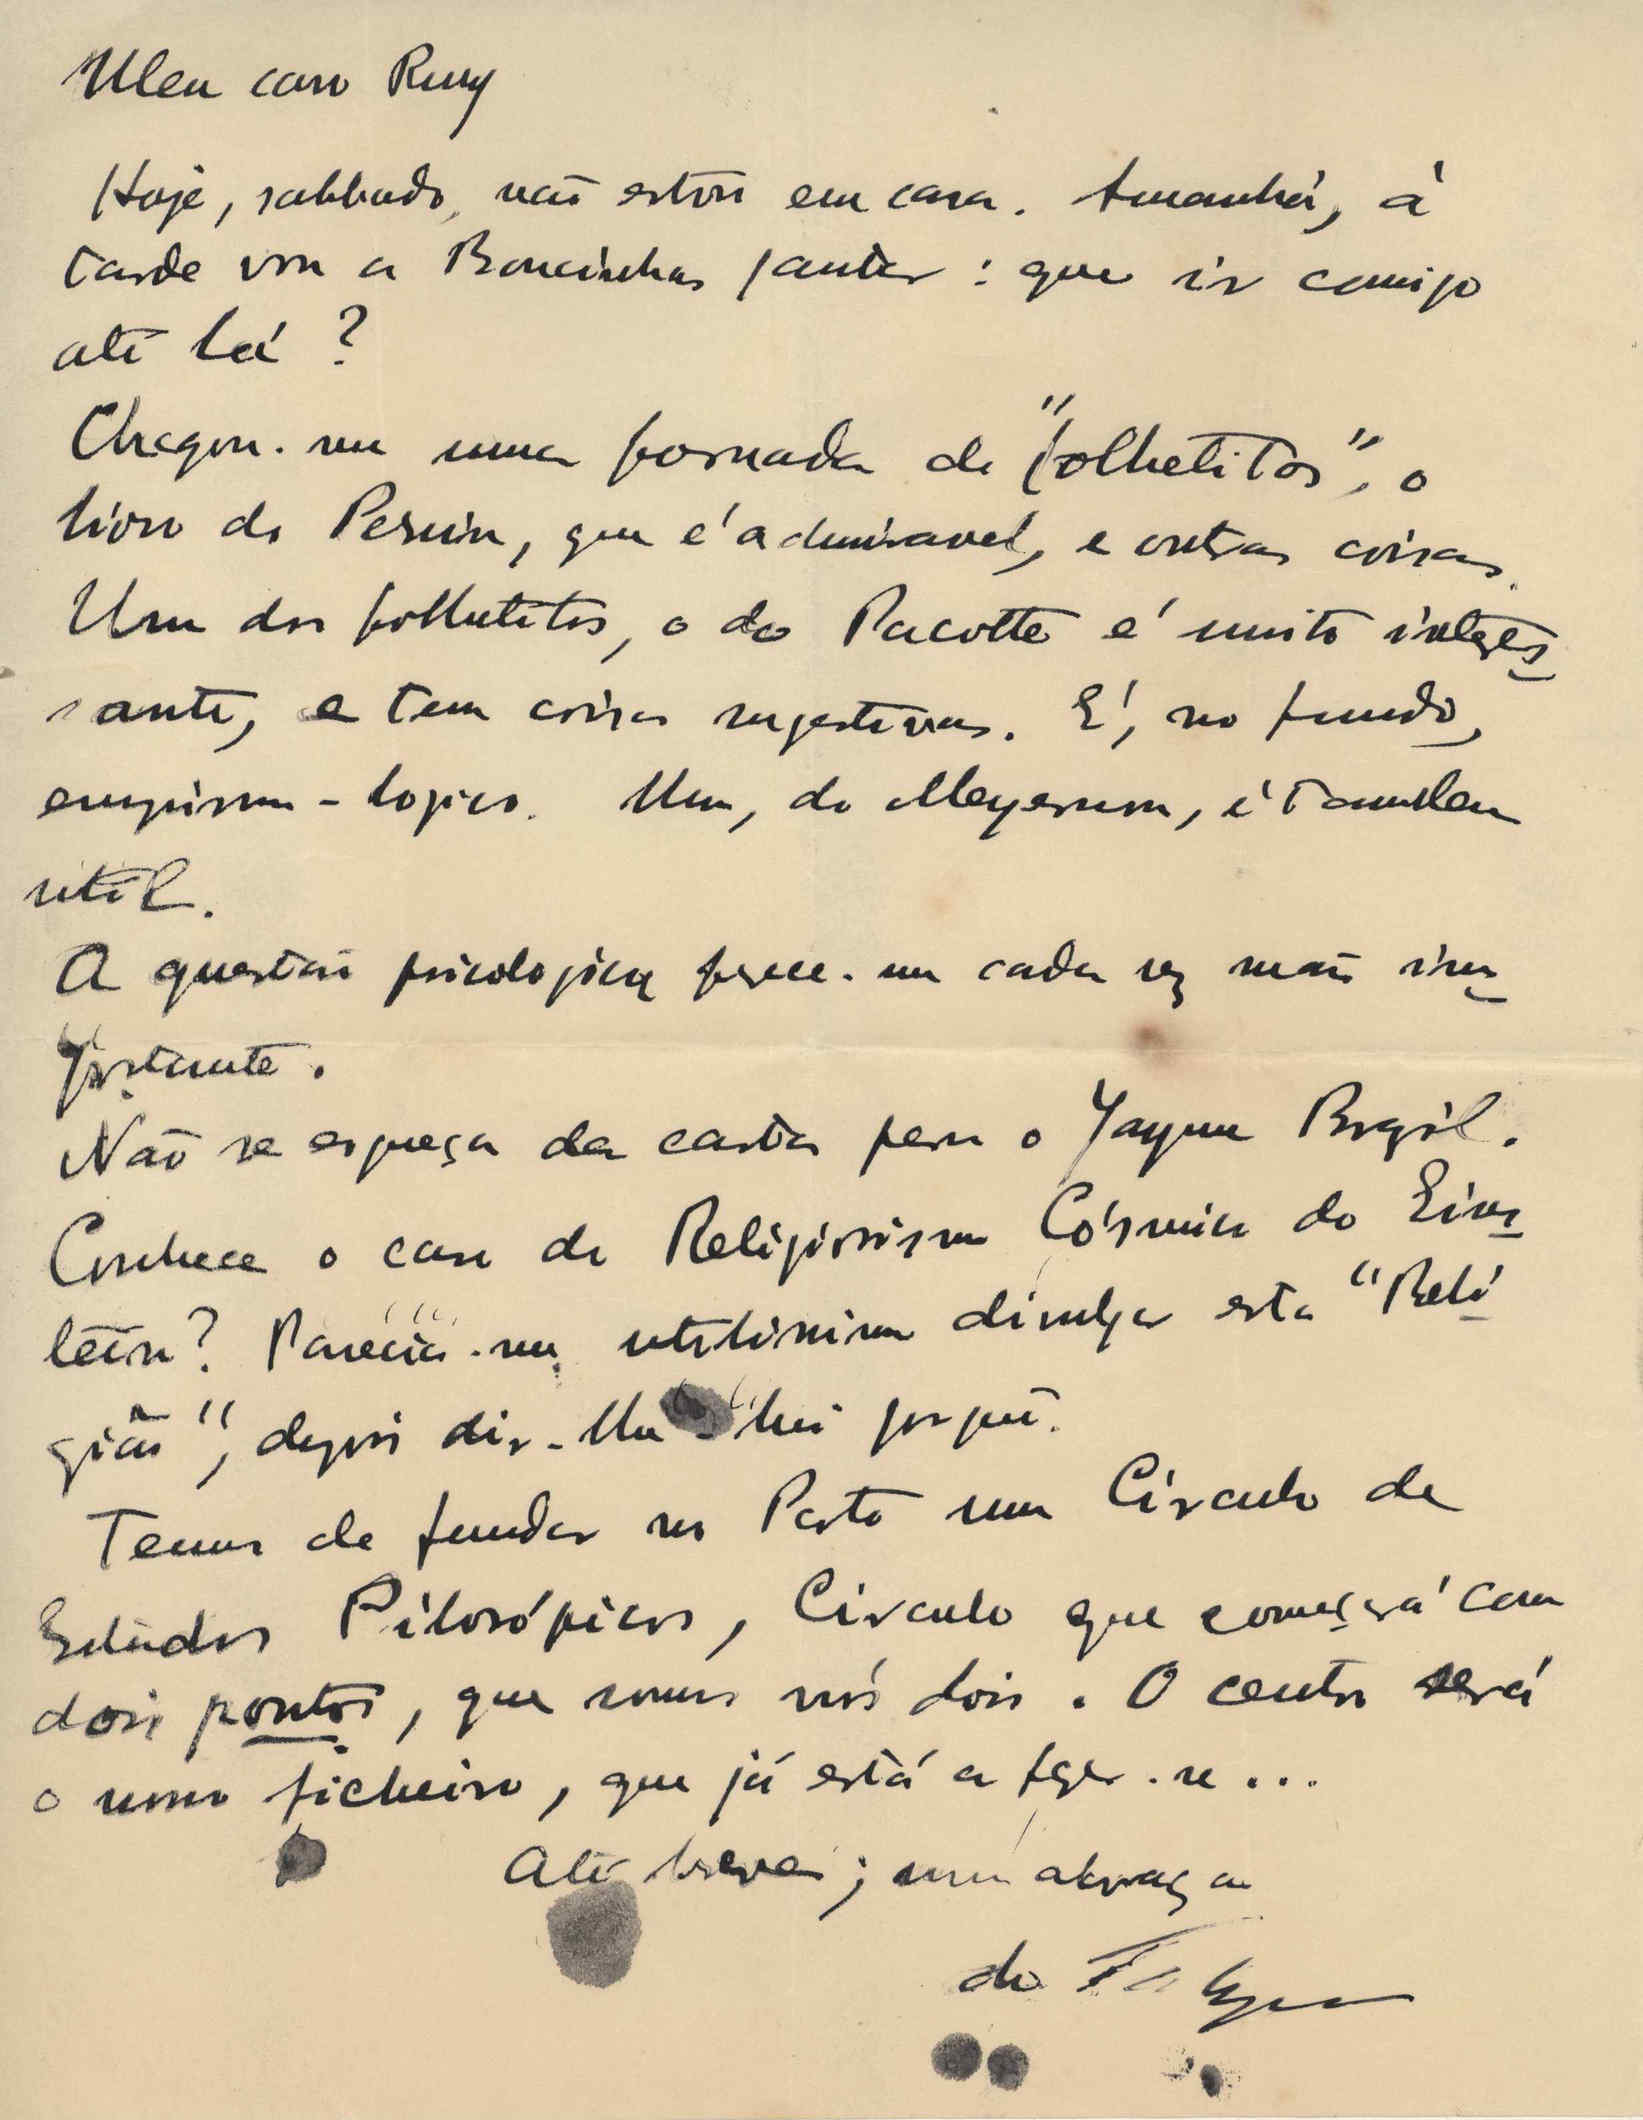 Meu caro Ruy
Hoje, sabbado, não estou em casa. Amanhã, à
tarde vou a Boucinhas jantar: quer ir comigo
até lá?
Chegou-me uma fornada de "folhetitos", o
livro do Perrin, que é admiravel, e outras coisas.
Um dos folhetitos, o do Pacotte é muito interes
sante, e tem coisas sugestivas. É, no fundo,
empirismo-logico. Um, do Meyerson, é tambem
util.
A questão psicologica parece-me cada vez mais im
portante.
Não se esqueça da carta para o Jayme Brasil.
Conhece o caso da Religiosismo Cósmico do Eins
tein? Parecia-me utilissimo divulgar esta "Reli
gião", depois dir-lhe-hei porquê.
Temos de fundar no Porto um Círculo de
Estudos Filosóficos, Círculo que começará com
dois pontos, que somos nós dois. O centro será
o nosso ficheiro, que já está a fazer-se...
Até breve; um abraço
do